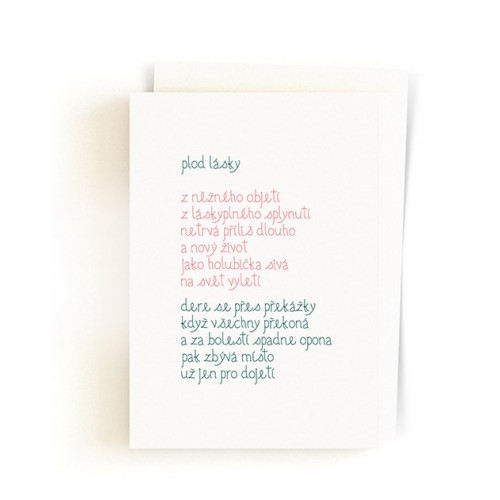 plod lásky
z něžného objetí
z láskyplného splynutí
netrvá příliš dlouho
a nový život
jako holubička sivá
na svět vyletí
dere se přes překážky
když všechny překoná
a za bolestí spadne opona
pak zbývá místo
už jen pro dojetí